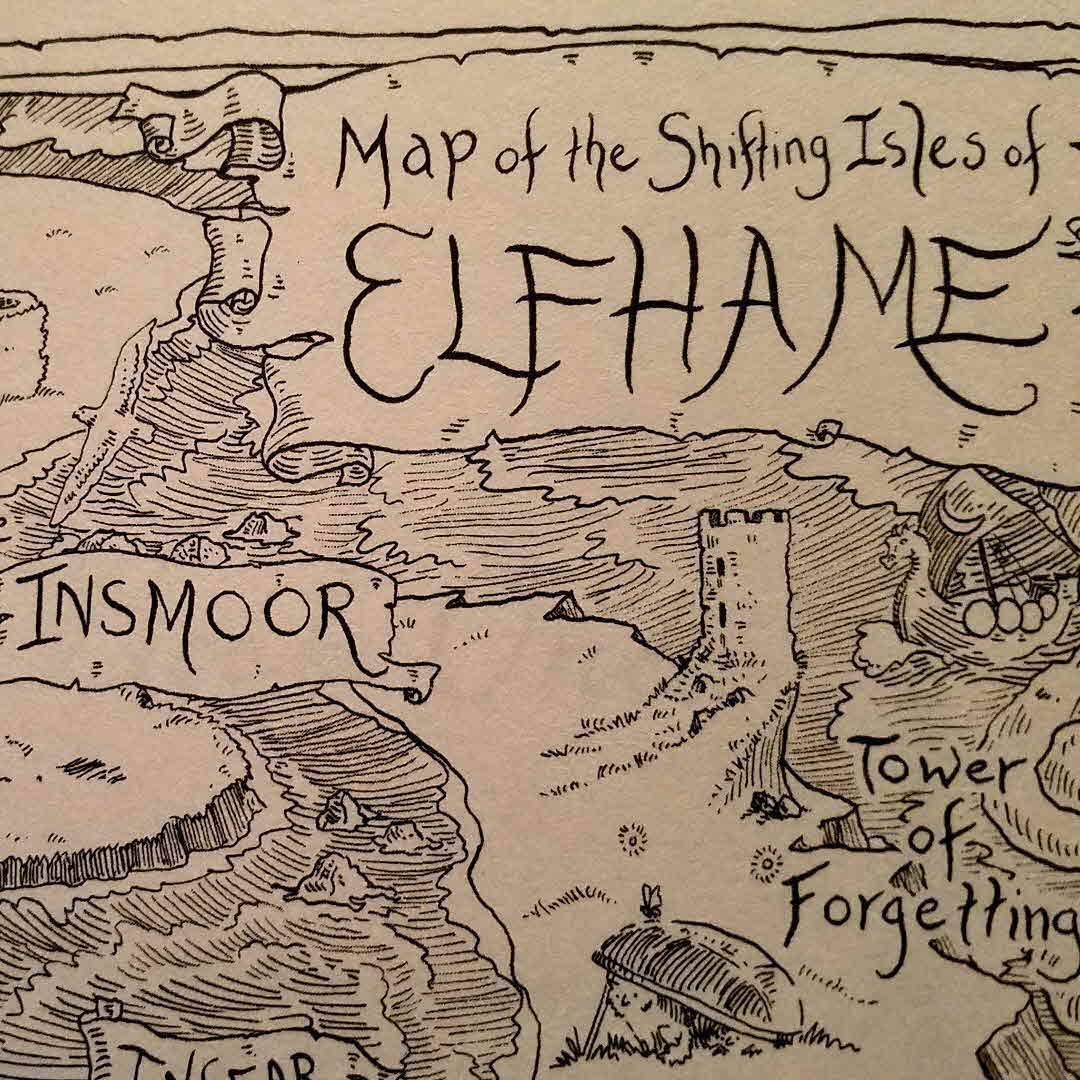 Map of the Shifting Isles of
ELFHAME
INSMOOR
Tower
of
Forgetting